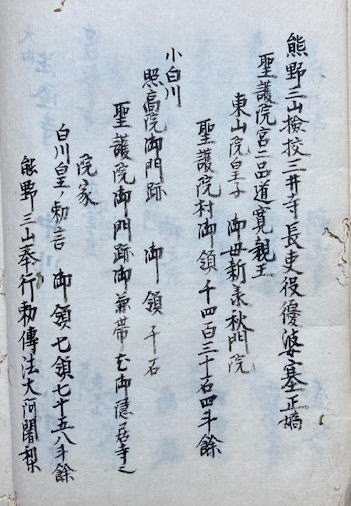 熊野三山檢挍三井寺長吏役優婆塞正嫡
聖護院宮二品道寛親王
東山院皇子　御母新羕秋門院
聖護院村御領　千四百三十石四斗餘
小白川
照高院御門跡　御領　千石
聖護院御門跡御兼帯む御隠居寺之
院家
白川皇ノ勅言　御領　七領七十五八斗餘
熊野三山奉行勅傳法大阿闍梨